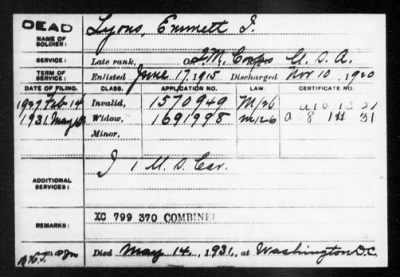 DEAD
NAME OF SOLDIER:
Lyons, Emmett I.
SERVICE:
Late rank, Q.M. Corps U.S.A.
TERM OF SERVICE:
Enlisted June 17, 1915 Discharged Nov 10, 1920
DATE OF FILING. CLASS. APPLICATION NO. LAW. CERTIFICATE NO.
1927 Feb 14 Invalid, 1570949 M/26
1931 May Widow, 1691998 M/26
Minor,
ADDITIONAL SERVICES:
I 1 U.S. Cav.
REMARKS:
XC 799 370 COMBINED
Died May 14, 1931, at Washington D.C.